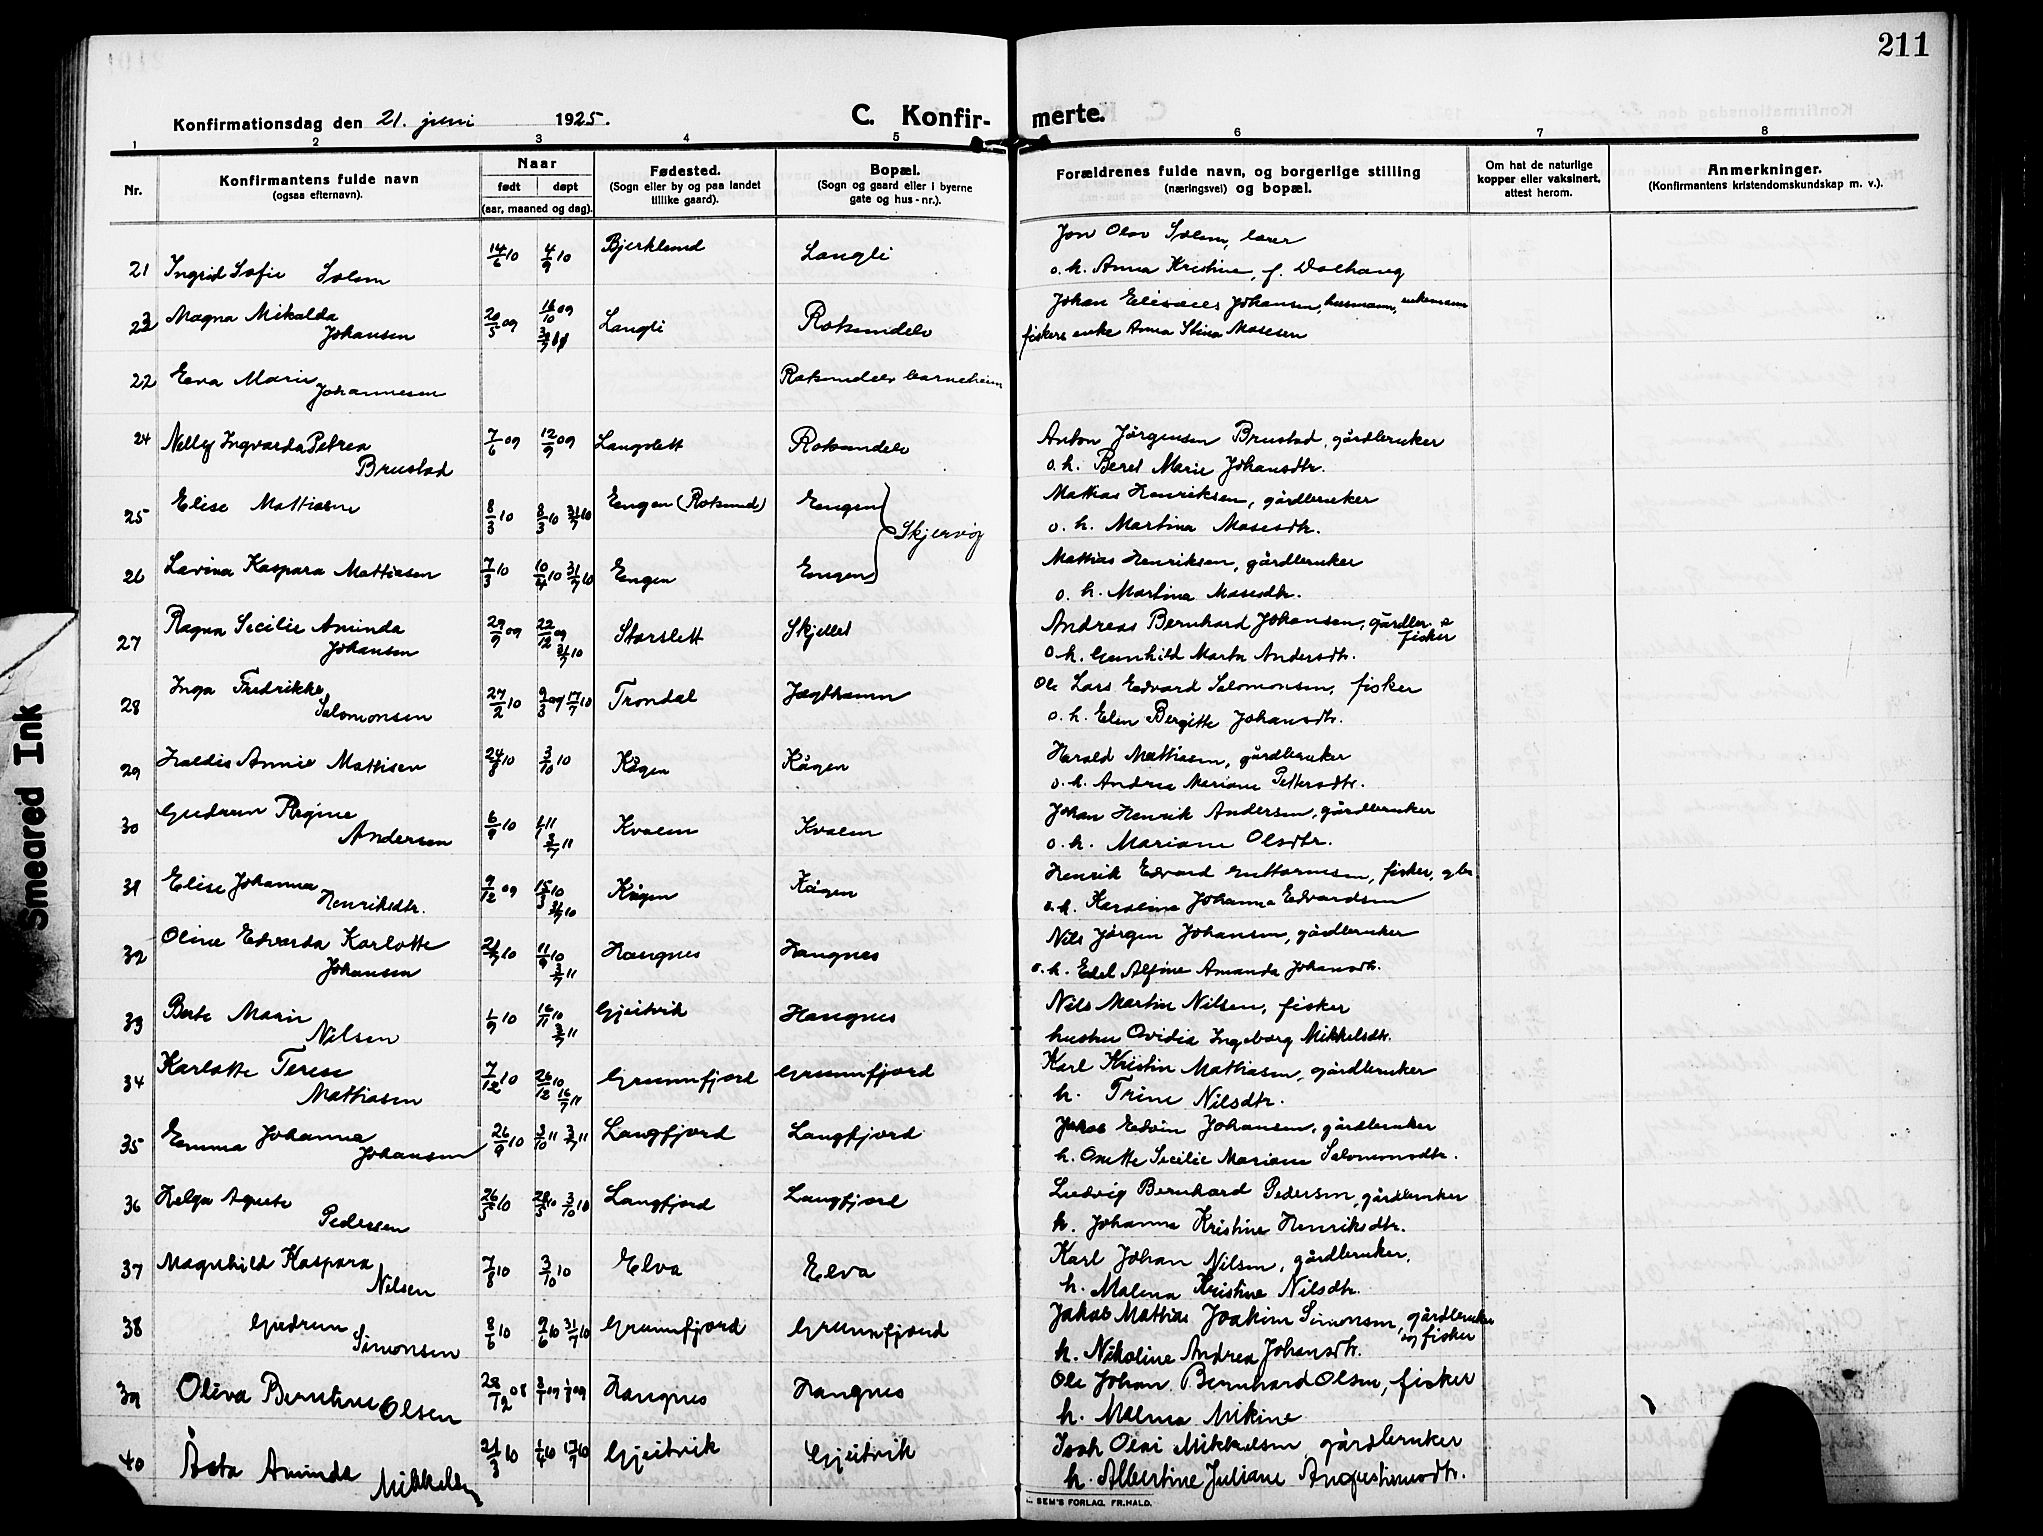 211
Konfirmationsdag den 21. juni 1925.
C. Konfir-
merte.
1 2 3 4 5 6 7 8
Nr.
Konfirmantens fulde navn
(ogsaa efternavn).
Naar
født døpt
(aar, maaned og dag).
Fødested.
(Sogn eller by og paa landet
tillike gaard).
Bopæl.
(Sogn og gaard eller i byerne
gate og hus-nr.).
Forældrenes fulde navn, og borgerlige stilling
(næringsvei) og bopæl.
Om hat de naturlige
kopper eller vaksinert,
attest herom.
Anmerkninger.
(Konfirmantens kristendomskundskap m. v.).
21 Ingrid Sofie Solem 14/6 10 4/9 10 Bjerklund Langli
Jon Olav Solem, lærer
o. h. Anna Kristine, f. Dalhaug
23 Magna Mikalda
Johansen 20/5 09 16/10 09 Langli Rotsundelv
Johan Johansen, husmann, enkemann
fiskers enke Anna Stina Mosesen
22 Eva Marie
Johannesen Rotsundelv barneheim
24 Nelly Ingvarda Petrea
Brustad 7/6 09 12/9 09 Langslett Rotsundelv
Anton Jörgensen Brustad, gårdbruker
o. h. Beret Marie Johansdtr.
25 Elise Mattiasen 8/3 10 8/3 10 31/7 10 Engen (Rotsund) Engen
Skjervöy
Mathias Henriksen, gårdbruker
o. h. Martina Mosesdtr.
26 Lavina Kaspara Mattiasen 7/3 10 10/4 10 31/7 10 Engen Engen
Mathias Henriksen, gårdbruker
o. h. Martina Mosesdtr.
27 Ragna Secilie Aminda
Johansen 29/9 09 22/12 09 31/7 10 Storslett Skjellet
Andreas Bernhard Johansen, gårdbr. &
fisker
o. h. Gunhild Marta Andersdtr.
28 Inga Fredrikke
Salomonsen 27/2 10 9/3 09 17/7 10 Trondal Jægthamn
Ole Lars Edvard Salomonsen, fisker
o. h. Elen Bergitte Johansdtr.
29 Haldis Annie Mattisen 24/8 10 3/10 10 Kågen Kågen
Harald Mattiasen, gårdbruker
o. h. Andrea Meriane Pettersdtr.
30 Gudrun Regine
Andersen 6/9 10 1/1 11 2/7 11 Kvalen Kvalen
Johan Henrik Andersen, gårdbruker
o. h. Mariane Olsdtr.
31 Elise Johanna
Henriksdtr. 9/12 09 15/3 10 31/7 10 Kågen Kågen
Henrik Edvard Guttormsen, fisker, gbr
o. h. Karoline Johanna Edvardsen
32 Oline Edvarda Karlotte
Johansen 21/7 10 11/9 10 2/7 11 Haugnes Haugnes
Nils Jörgen Johansen, gårdbruker
o. h. Edel Alfine Amanda Johansdtr.
33 Berte Marie
Nilsen 1/9 10 16/11 10 2/7 11 Gjeitvik Haugnes
Nils Martin Nilsen, fisker
hustru Ovidia Ingeborg Mikkelsdtr.
34 Karlotte Terese
Mattiasen 7/12 10 26/12 10 16/7 11 Grunnfjord Grunnfjord
Karl Kristin Mattiasen, gårdbruker
h. Trine Nilsdtr.
35 Emma Johanna
Johansen 26/9 10 3/10 11 2/7 11 Langfjord Langfjord
Jakob Edvin Johansen, gårdbruker
h. Anette Secilie Mariane Salomonsdtr.
36 Helga Agusta
Pedersen 26/5 10 28/5 10 3/10 10 Langfjord Langfjord
Ludvig Bernhard Pedersen, gårdbruker
h. Johanna Kristine Henriksdtr.
37 Magnhild Kaspara
Nilsen 7/8 10 3/10 10 Elva Elva
Karl Johan Nilsen, gårdbruker.
h. Malena Kristine Nilsdtr.
38 Gudrun
Simonsen 8/6 10 9/6 10 31/7 10 Grunnfjord Grunnfjord
Jakob Mathias Joakim Simonsen, gårdbruker
og fisker
h. Nikoline Andrea Johansdtr.
39 Oliva Berntine Olsen 29/12 08 3/1 09 Haugnes Haugnes
Ole Johan Bernhard Olsen, fisker
h. Malena Mikine
40 Åsta Aminda Mikkelsen 21/3 10 1/4 10 17/7 10 Gjeitvik Gjeitvik
Isak Olai Mikkelsen, gårdbruker
h. Albertine Juliane Angustinusdtr.
SEM'S FORLAG. FR. HALD.
Smeared Ink